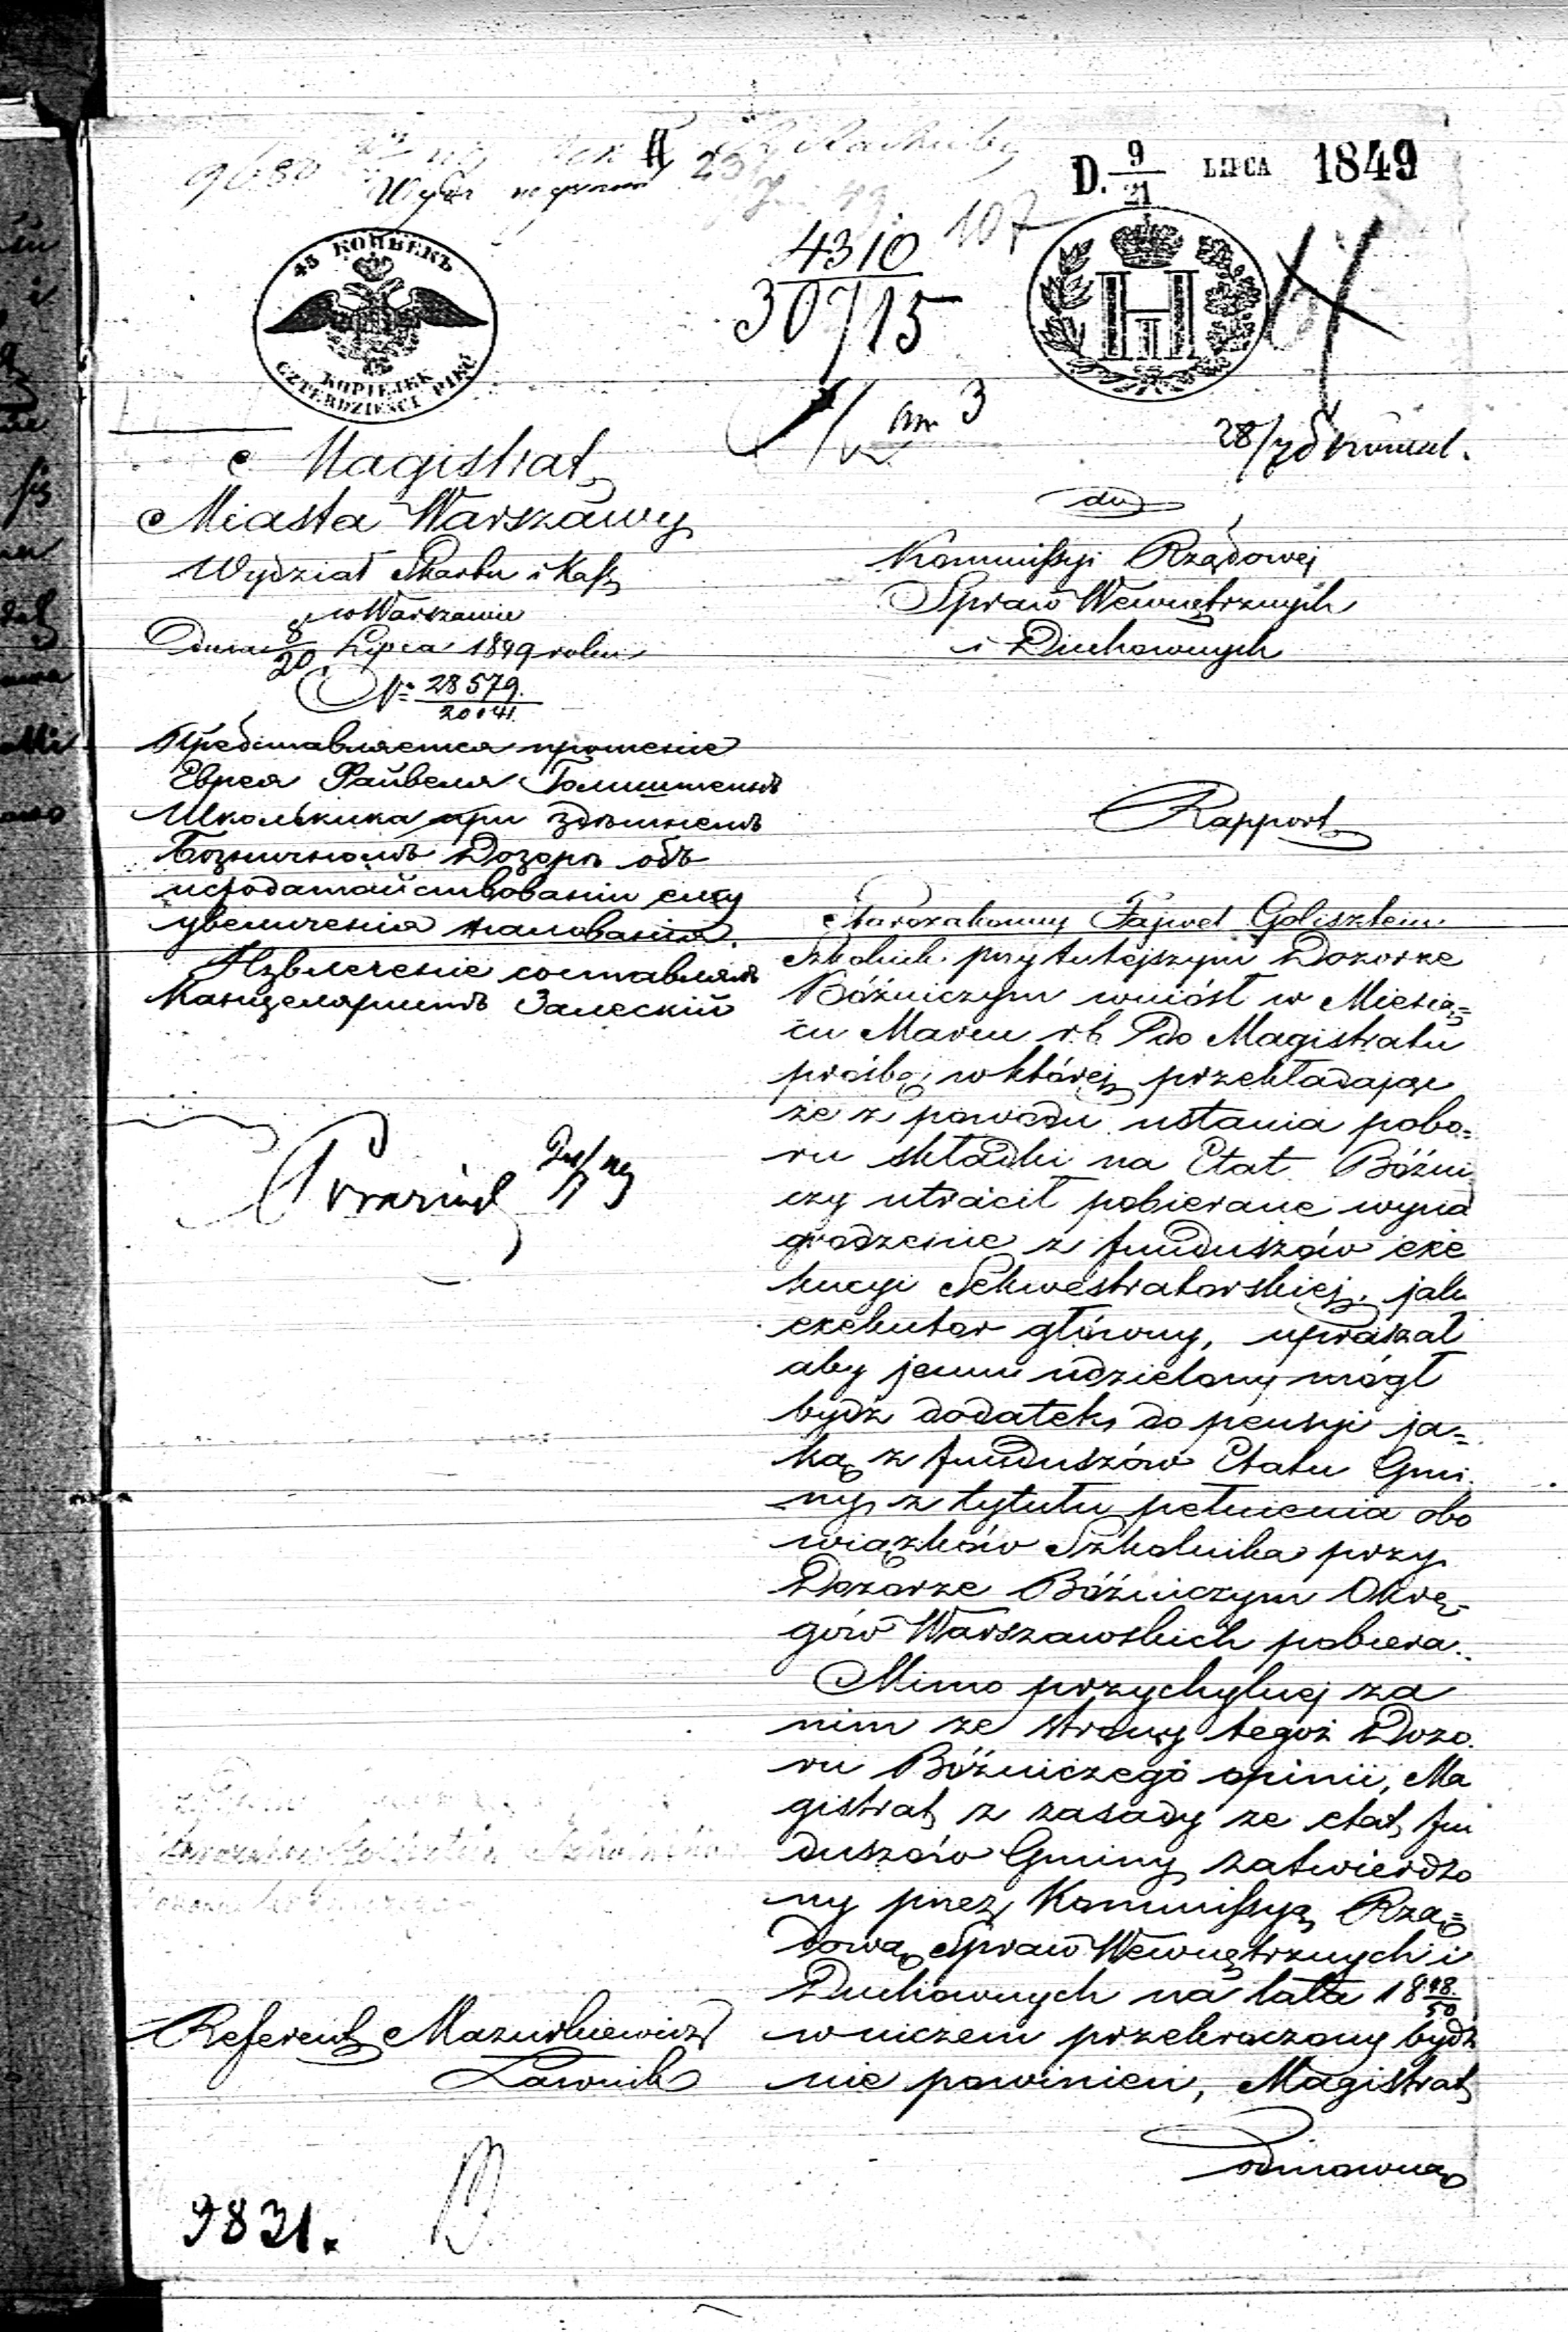 D. 9/21 LIPCA 1849
4310
107
30715
45 КОПѢЕКЪ
KOPIEJEK
CZTERDZIEŚCI PIĘĆ
Magistrat
Miasta Warszawy
Wydział Skarbu i Kass
w Warszawie
Dnia 8/20 Lipca 1849 roku
№ 28579.
20141.
Представляется прошеніе
Еврея Файвеля Голиштейнъ
Школьника при здѣшнемъ
Божничномъ Дозорѣ объ
исходатайствованіи ему
увеличенія жалованія.
Извлеченіе составлялъ
Канцеляристъ Залескій
Referent Mazurkiewicz
Ławnik
9831.
do
Kommissyi Rządowej
Spraw Wewnętrznych
i Duchownych
Rapport
Starozakonny Fajwel Golisztein
Szkolnik przy tutejszym Dozorze
Bóźniczym wniósł w Miesią=
cu Marcu r.b. do Magistratu
prośbę, w której przekładając
że z powodu ustania pobo=
ru składki na Etat Bóźni
czy utracił pobierane wyna
grodzenie z funduszów exe
kucyi Sekwestratorskiej, jak
exekutor główny, upraszał
aby jemu udzielony mógł
bydź dodatek do pensyi ja=
ką z funduszów Etatu Gmi
ny, z tytułu pełnienia obo
wiązków Szkolnika przy
Dozorze Bóźniczym Okrę=
gów Warszawskich pobiera.
Mimo przychylnej za
nim ze strony tegoż Dozo
ru Bóźniczego opinii, Ma
gistrat z zasady że etat fun
duszów Gminy zatwierdzo
ny przez Kommissyą Rzą=
dową Spraw Wewnętrznych i
Duchownych na lata 1848/50
w niczem przekraczany bydź
nie powinien, Magistrat
odmowną